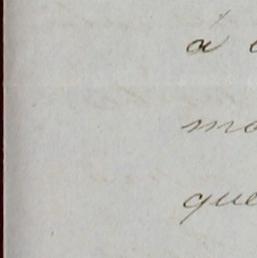 á
mo
que